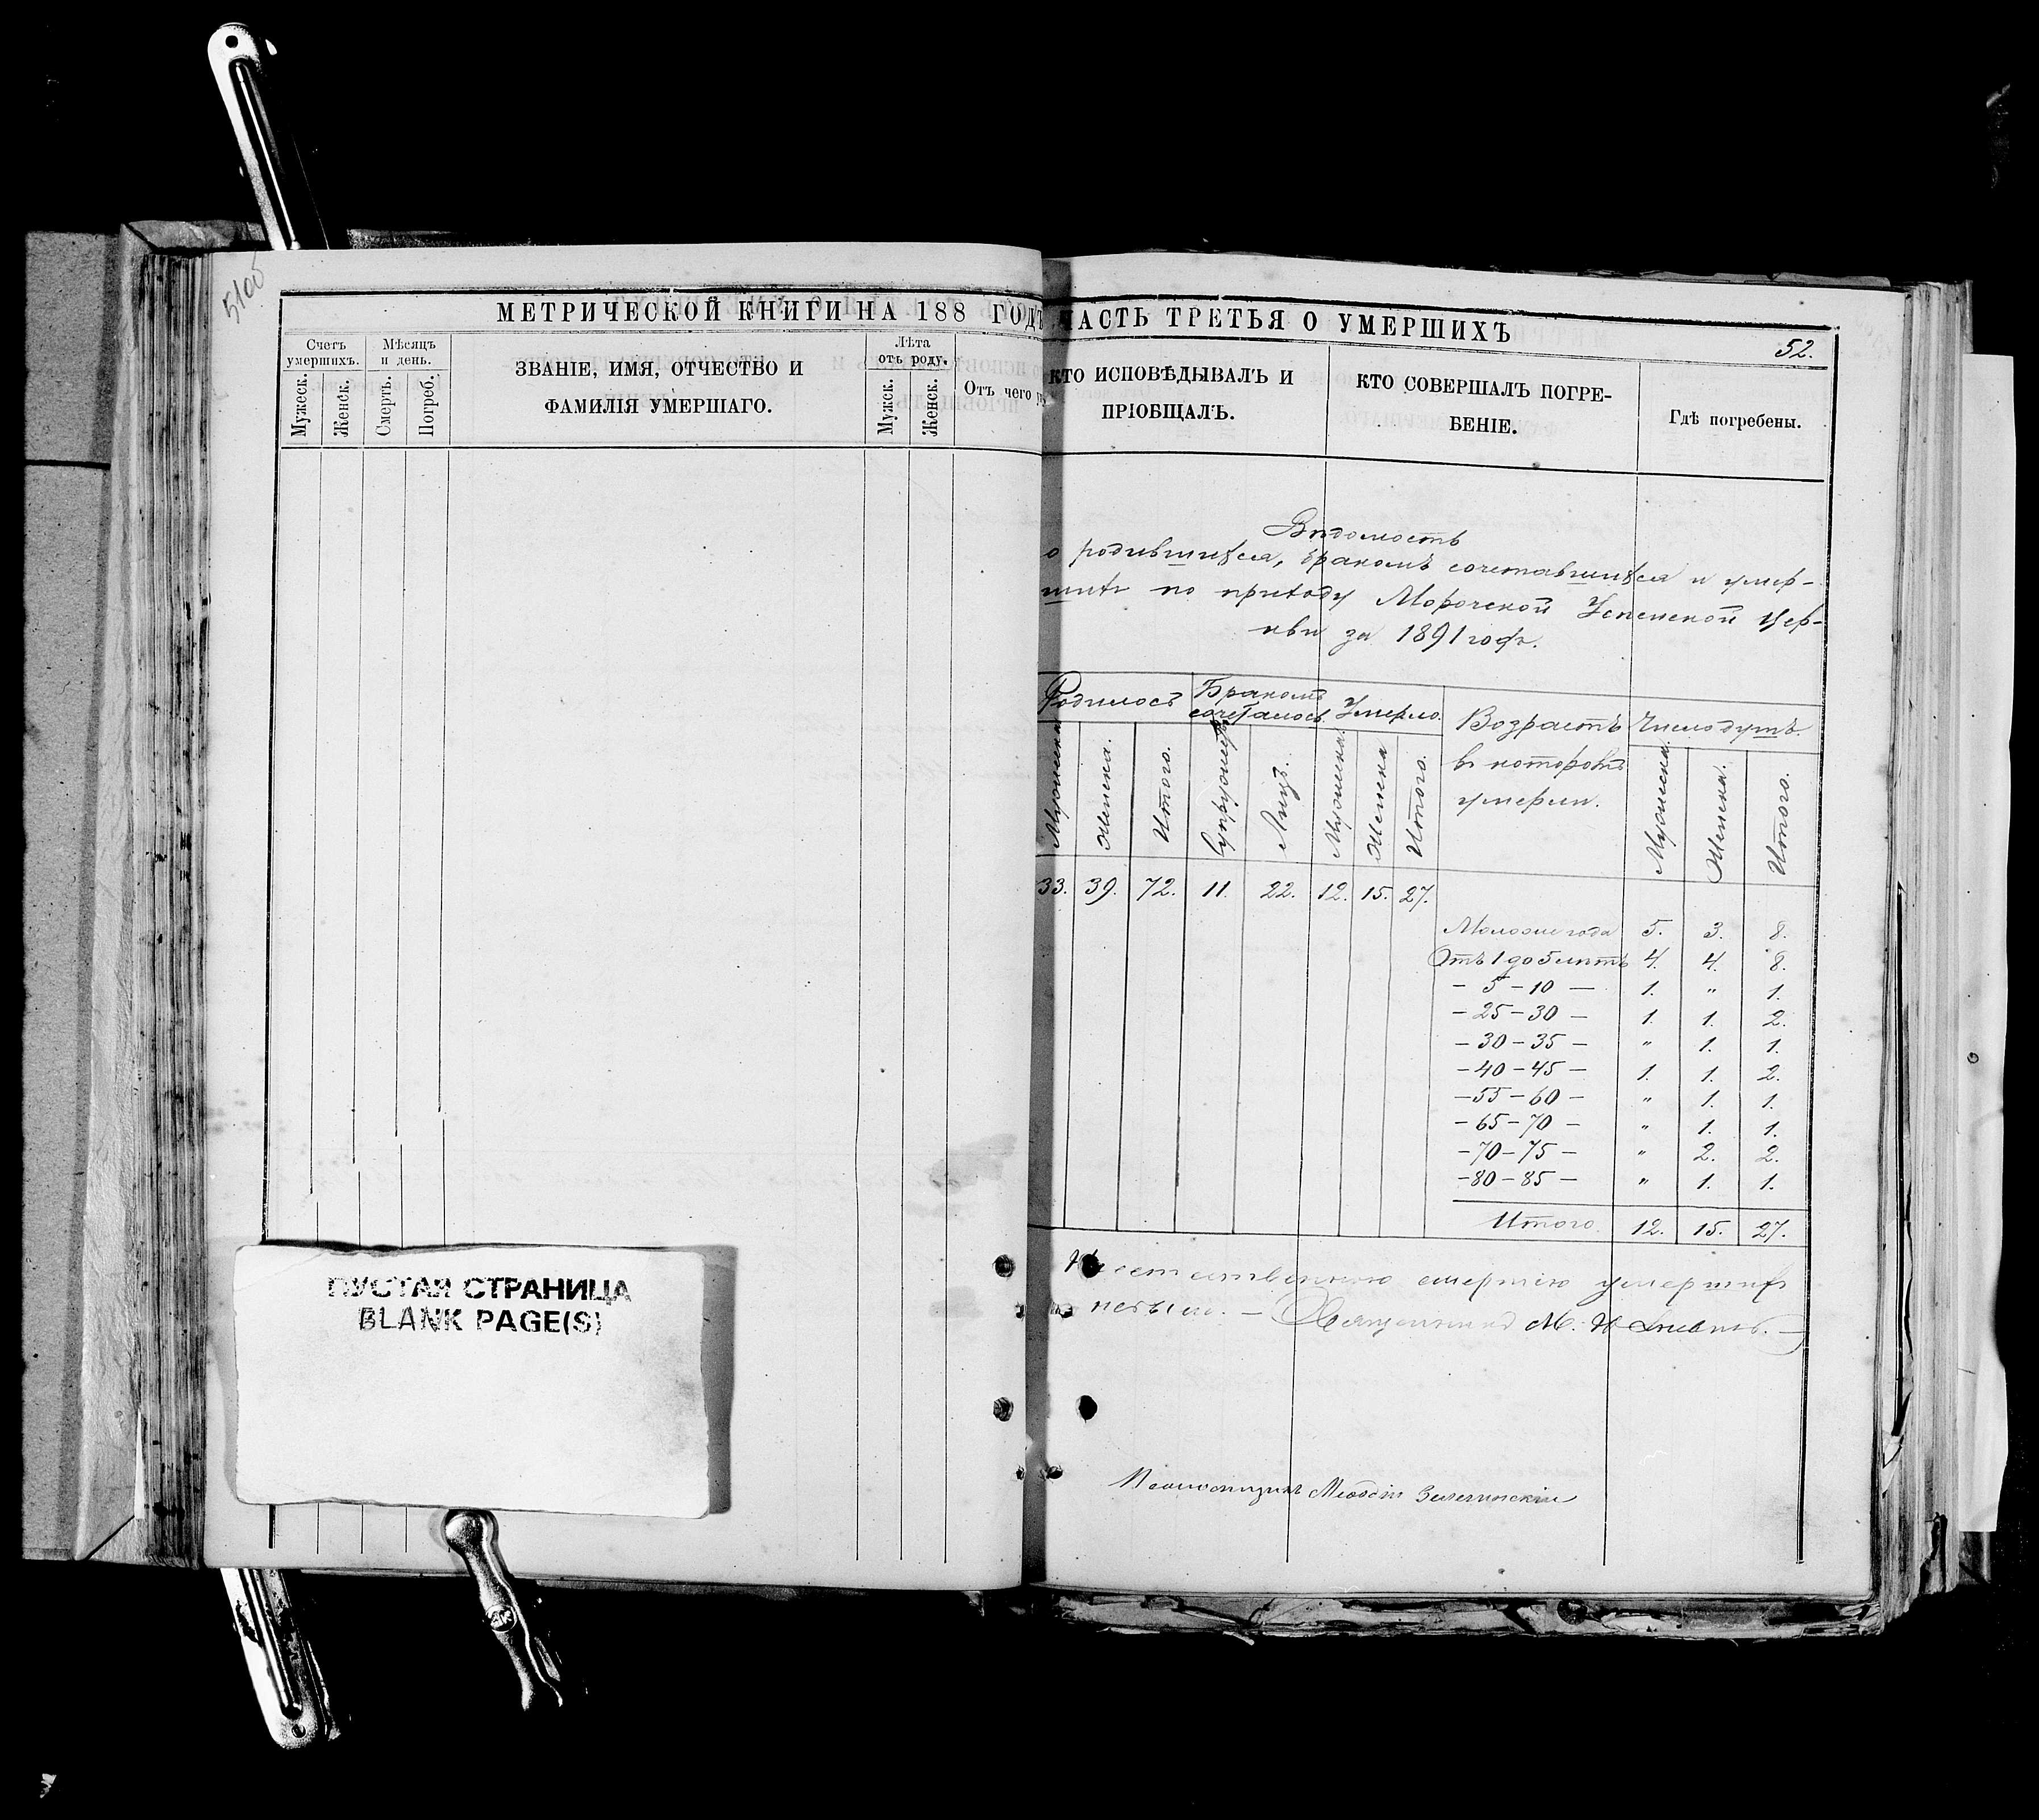 51об
МЕТРИЧЕСКОЙ КНИГИ НА 188 ГОДЪ
Счетъ умершихъ.
Мѣсяцъ и день.
ЗВАНІЕ, ИМЯ, ОТЧЕСТВО И
ФАМИЛІЯ УМЕРШАГО.
Лѣта отъ роду.
Отъ чего
Мужеск.
Женск.
Смерть.
Погреб.
Мужск.
Женск.
ПУСТАЯ СТРАНИЦА
BLANK PAGE(S)
ЧАСТЬ ТРЕТЬЯ О УМЕРШИХЪ
52.
КТО ИСПОВѢДЫВАЛЪ И
ПРІОБЩАЛЪ.
КТО СОВЕРШАЛЪ ПОГРЕ-
БЕНІЕ.
Гдѣ погребены.
Вѣдомость
о родившихся, бракомъ сочетавшихся и умер-
шихъ по приходу Морочской Успенской Цер-
кви за 1891 годъ.
Родилось Бракомъ сочеталось Умерло. Возрастъ въ которомъ умерли. Число душъ.
Мужеска Женска. Итого. Супружествъ Лицъ. Мужеска. Женска Итого. Мужеска. Женска. Итого.
33. 39. 72. 11. 22. 12. 15. 27.
Моложе года 5. 3. 8.
Отъ 1 до 5 лѣтъ 4. 4. 8.
- 5 - 10 - 1. " 1.
- 25 - 30 - 1. 1. 2.
- 30 - 35 - " 1. 1.
- 40 - 45 - 1. 1. 2.
- 55 - 60 - " 1. 1.
- 65 - 70 - " 1. 1.
- 70 - 75 - " 2. 2.
- 80 - 85 - " 1. 1.
Итого. 12. 15. 27.
смертію умершихъ
не было. — Священникъ М.
Псаломщикъ Меѳодій